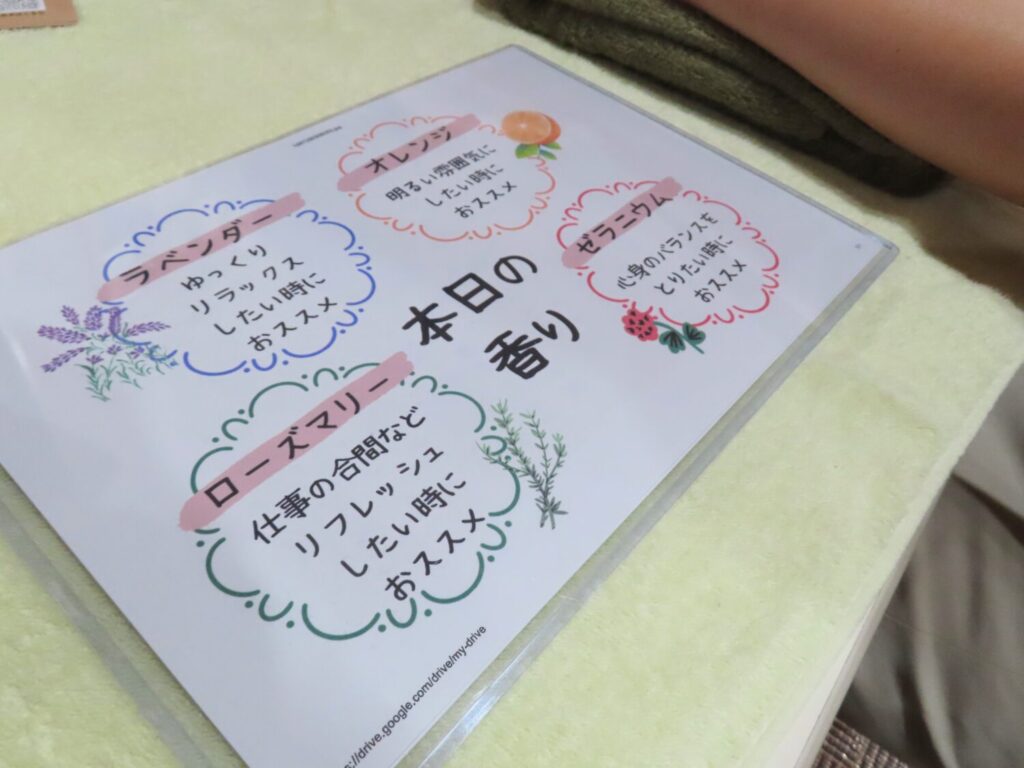 オレンジ
明るい雰囲気に
したい時に
おススメ
ラベンダー
ゆっくり
リラックス
したい時に
おススメ
ゼラニウム
心身のバランスを
とりたい時に
おススメ
本日の
香り
ローズマリー
仕事の合間など
リフレッシュ
したい時に
おススメ
://drive.google.com/drive/my-drive